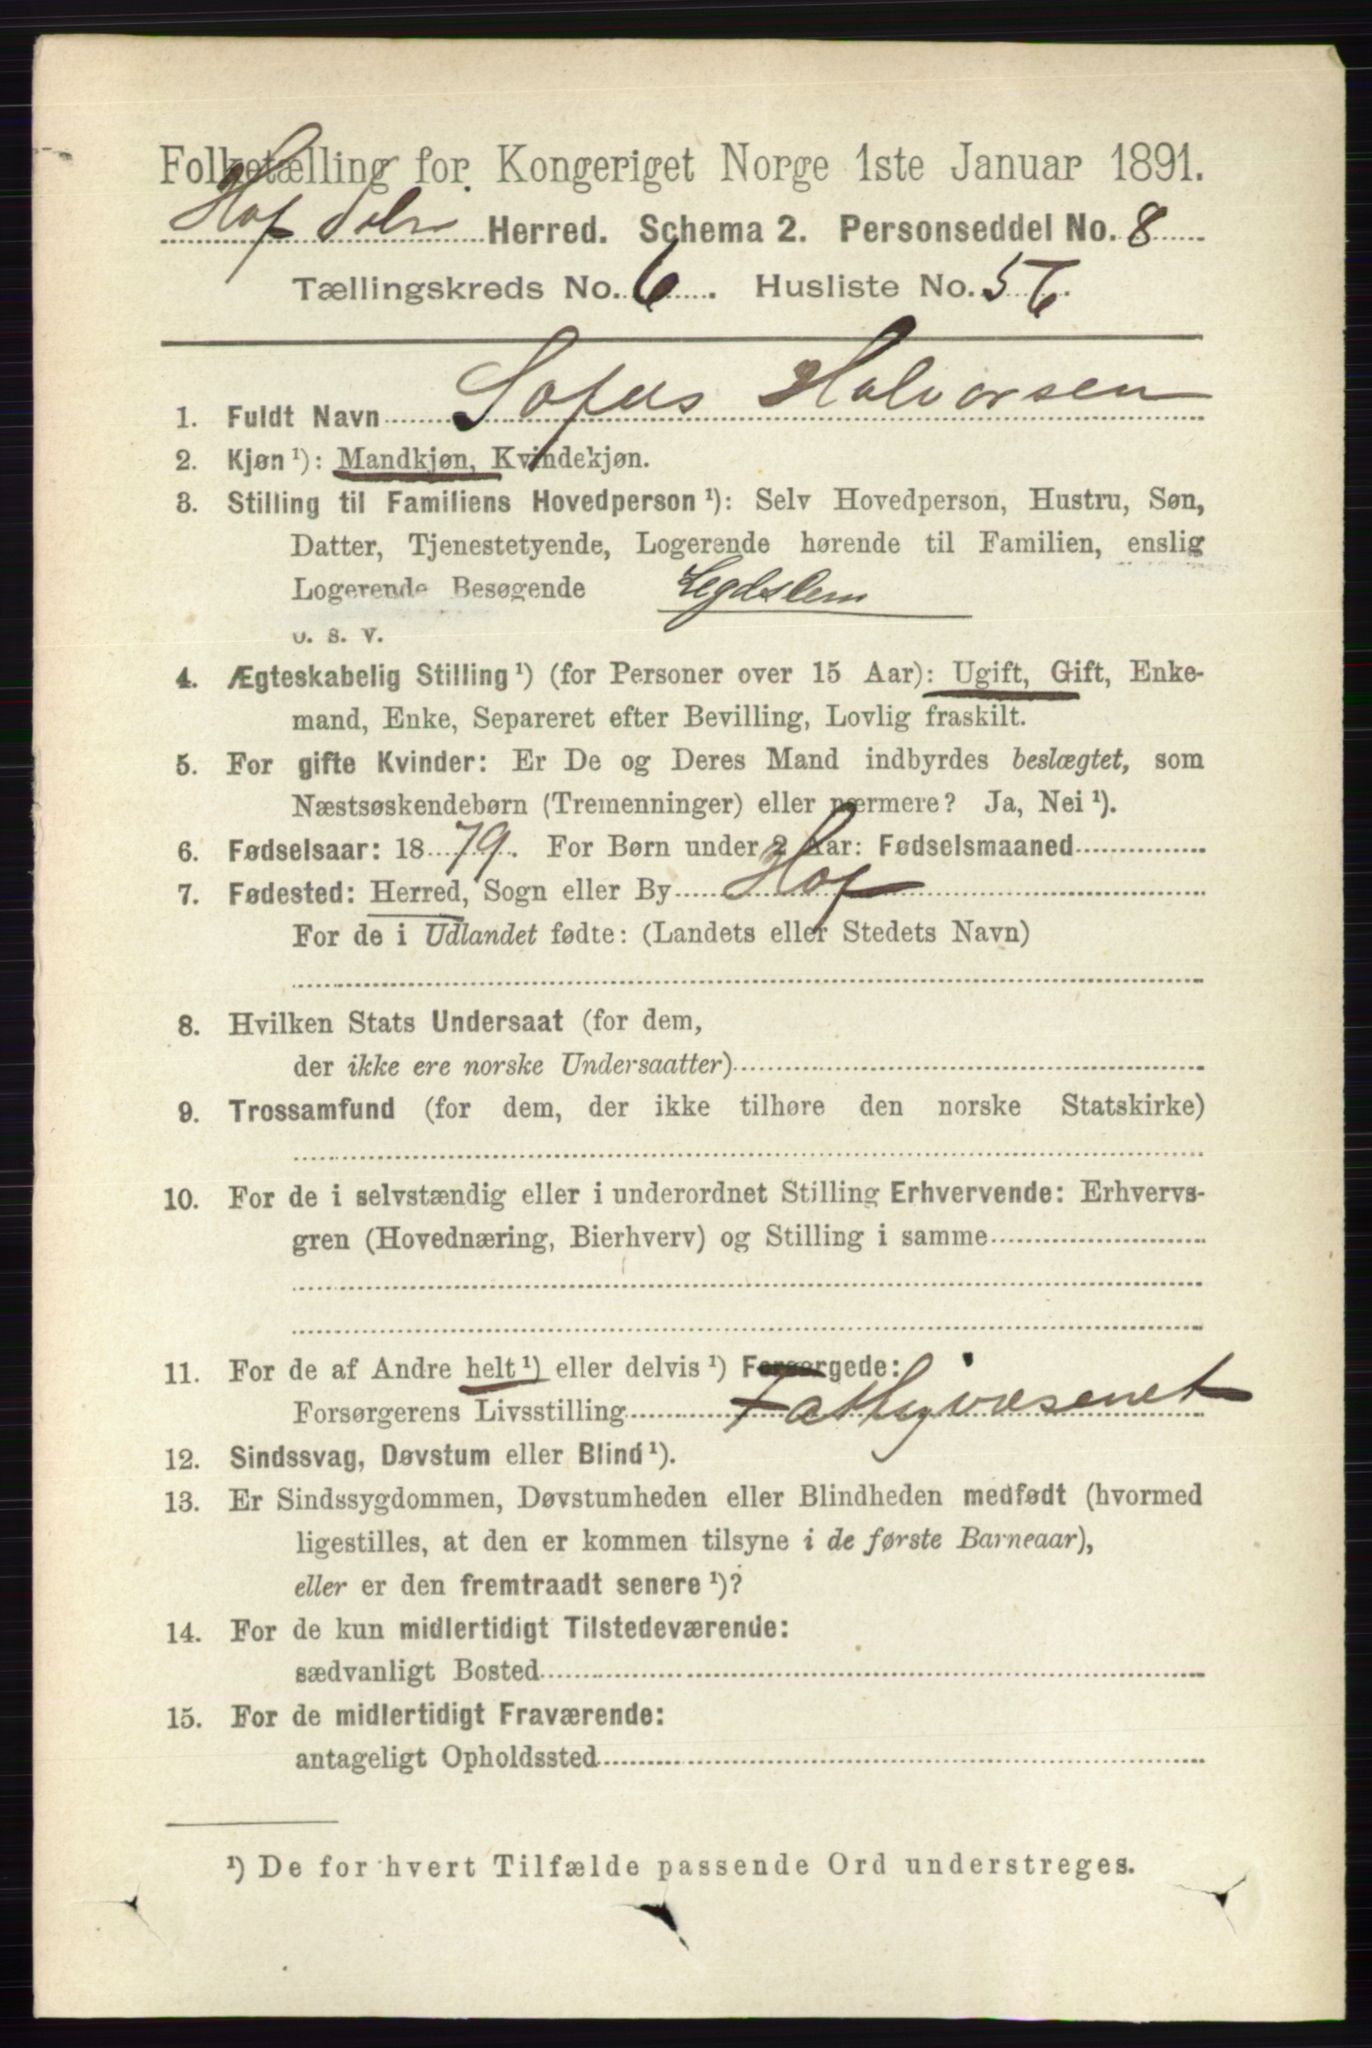 Folketælling for Kongeriget Norge 1ste Januar 1891.
Hof Solør Herred. Schema 2. Personseddel No. 8
Tællingskreds No. 6. Husliste No. 56.
1. Fuldt Navn Sofus Halvorsen
2. Kjøn ¹): Mandkjøn, Kvindekjøn.
3. Stilling til Familiens Hovedperson ¹): Selv Hovedperson, Hustru, Søn,
Datter, Tjenestetyende, Logerende hørende til Familien, enslig
Logerende Besøgende Legdslem
o. s. v.
4. Ægteskabelig Stilling ¹) (for Personer over 15 Aar): Ugift, Gift, Enke-
mand, Enke, Separeret efter Bevilling, Lovlig fraskilt.
5. For gifte Kvinder: Er De og Deres Mand indbyrdes beslægtet, som
Næstsøskendebørn (Tremenninger) eller nærmere? Ja, Nei ¹).
6. Fødselsaar: 1879. For Børn under 2 Aar: Fødselsmaaned
7. Fødested: Herred, Sogn eller By Hof
For de i Udlandet fødte: (Landets eller Stedets Navn)
8. Hvilken Stats Undersaat (for dem,
der ikke ere norske Undersaatter)
9. Trossamfund (for dem, der ikke tilhøre den norske Statskirke)
10. For de i selvstændig eller i underordnet Stilling Erhvervende: Erhvervs-
gren (Hovednæring, Bierhverv) og Stilling i samme
11. For de af Andre helt ¹) eller delvis ¹) Forsørgede:
Forsørgerens Livsstilling Fattigvæsenet
12. Sindssvag, Døvstum eller Blind ¹).
13. Er Sindssygdommen, Døvstumheden eller Blindheden medfødt (hvormed
ligestilles, at den er kommen tilsyne i de første Barneaar),
eller er den fremtraadt senere ¹)?
14. For de kun midlertidigt Tilstedeværende:
sædvanligt Bosted
15. For de midlertidigt Fraværende:
antageligt Opholdssted
¹) De for hvert Tilfælde passende Ord understreges.